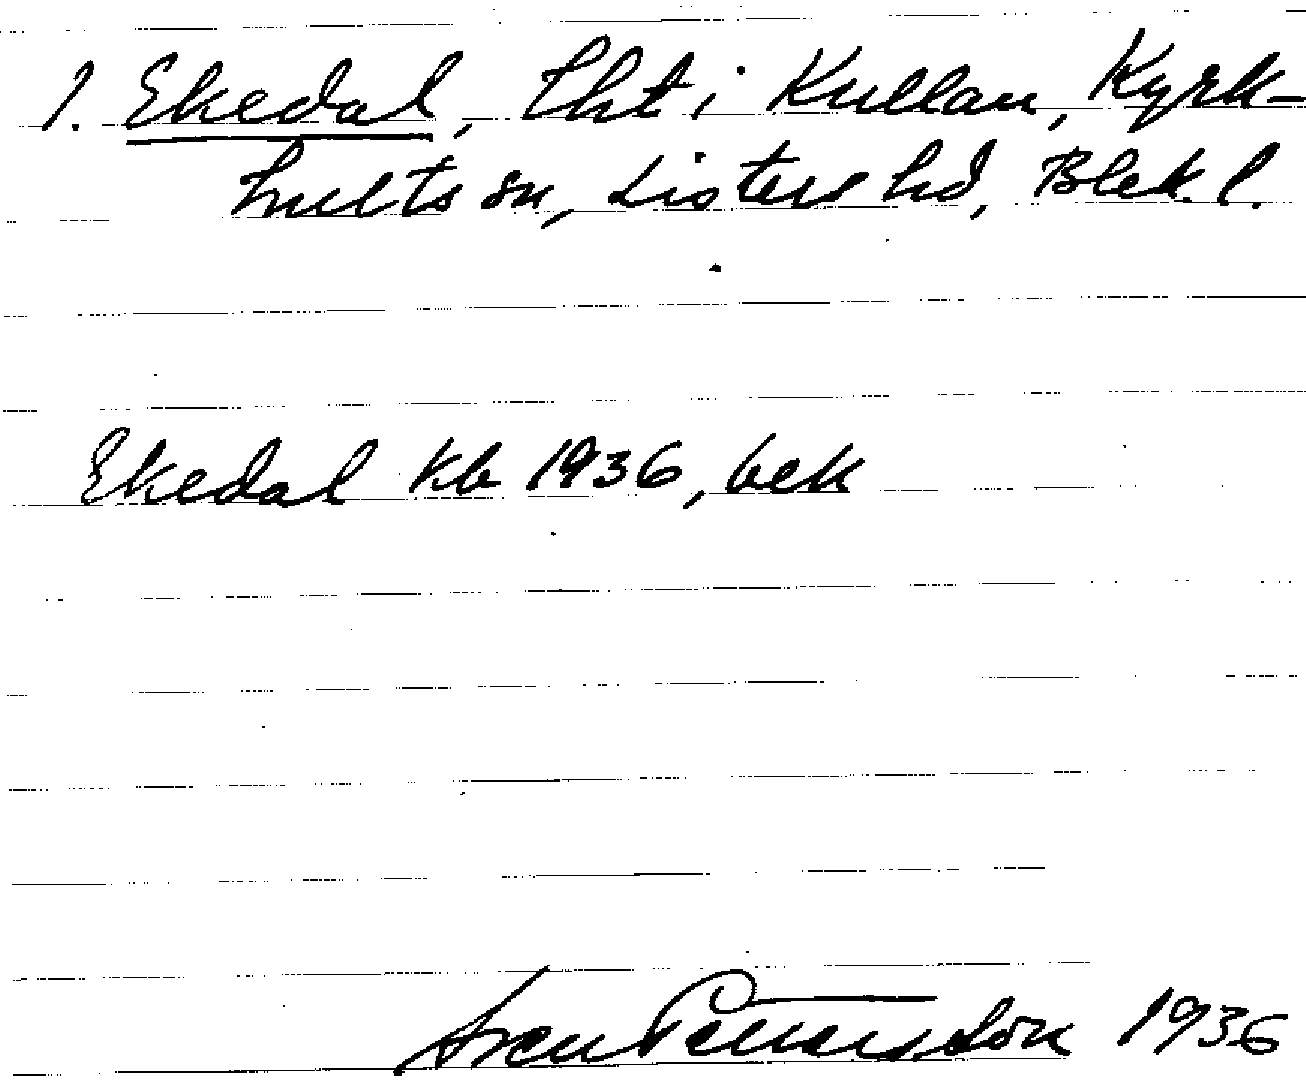 1. Ekedal, lht i Kullan, Kyrk-
hults sn, Listers hd, Blek. l.
Ekedal kb 1936, bek
Sven Pettersson 1936